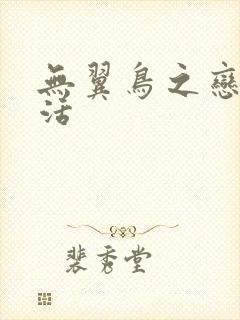 無翼鳥之戀
活
裴秀堂